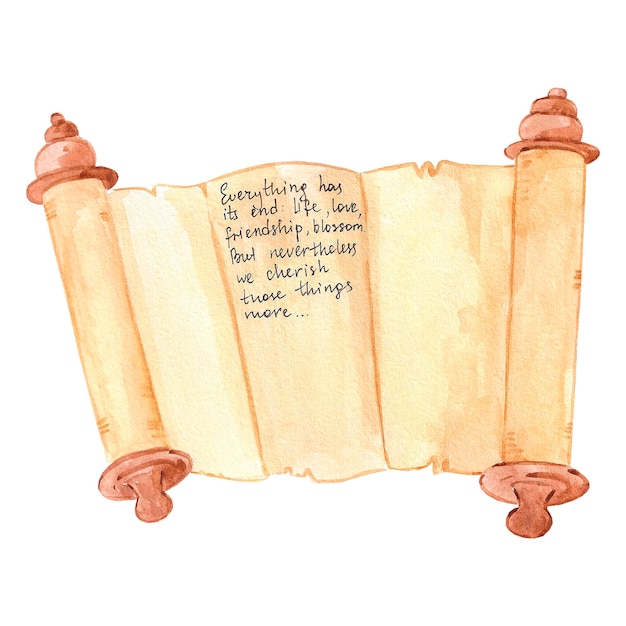 Everything has
its end: life, love,
friendship, blossom.
But nevertheless
we cherish
those things
more...